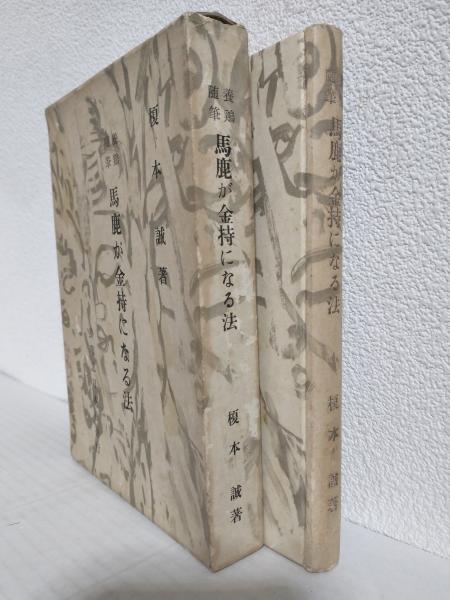 榎本誠著
養鶏
随筆
馬鹿が金持になる法
養鶏
随筆
馬鹿が金持になる法
榎本誠著
随筆
馬鹿が金持になる法
榎本誠著